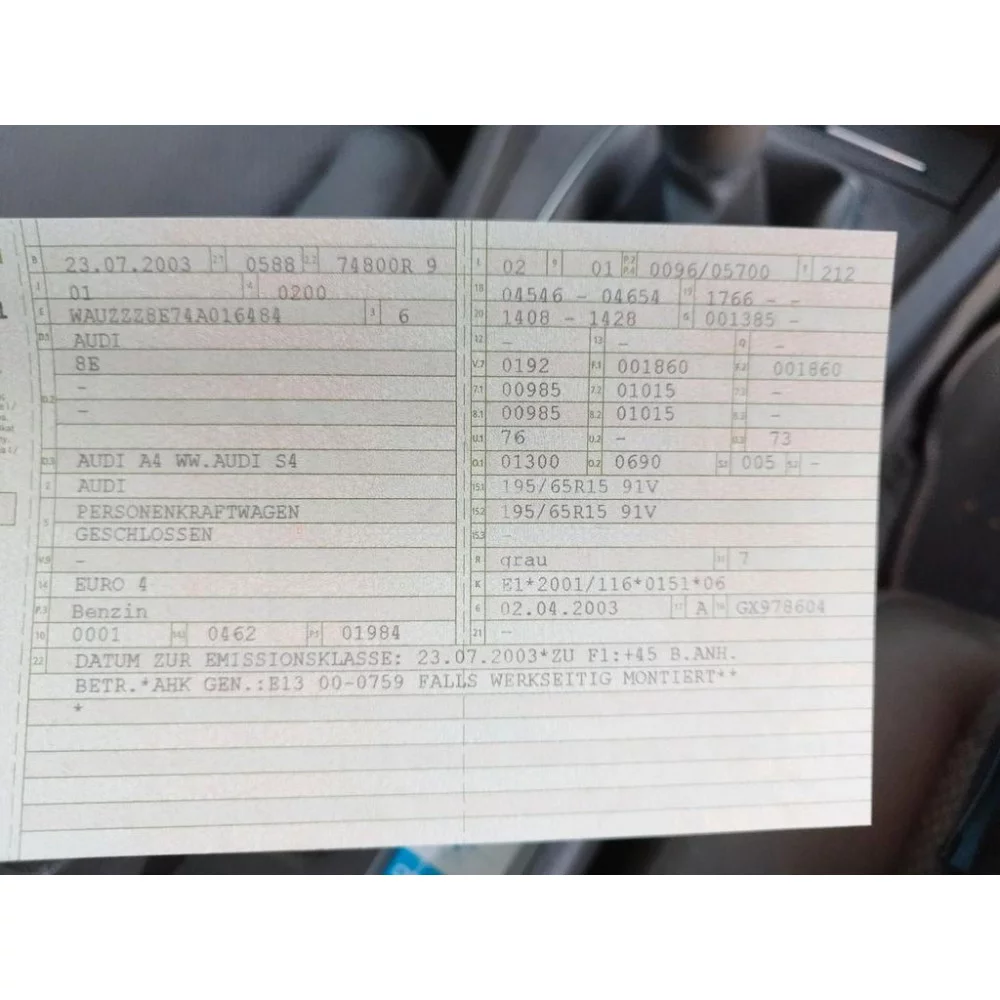 B 23.07.2003 2.1 0588 2.2 74800R 9
J 01 4 0200
E WAUZZZ8E74A016484 3 6
D.1 AUDI
8E
-
D.2 -
D.3 AUDI A4 WW.AUDI S4
2 AUDI
5 PERSONENKRAFTWAGEN
GESCHLOSSEN
V.9 -
14 EURO 4
P.3 Benzin
10 0001 14.1 0462 P.1 01984
L 02 9 01 P.2 P.4 0096/05700 T 212
18 04546 - 04654 19 1766 - -
20 1408 - 1428 G 001385 -
12 - 13 - Q -
V.7 0192 F.1 001860 F.2 001860
7.1 00985 7.2 01015 7.3 -
8.1 00985 8.2 01015 8.3 -
U.1 76 U.2 - U.3 73
O.1 01300 O.2 0690 S.1 005 S.2 -
15.1 195/65R15 91V
15.2 195/65R15 91V
15.3 -
R grau 11 7
K E1*2001/116*0151*06
6 02.04.2003 17 A 16 GX978604
21 -
22 DATUM ZUR EMISSIONSKLASSE: 23.07.2003*ZU F1:+45 B.ANH.
BETR.*AHK GEN.:E13 00-0759 FALLS WERKSEITIG MONTIERT**
*